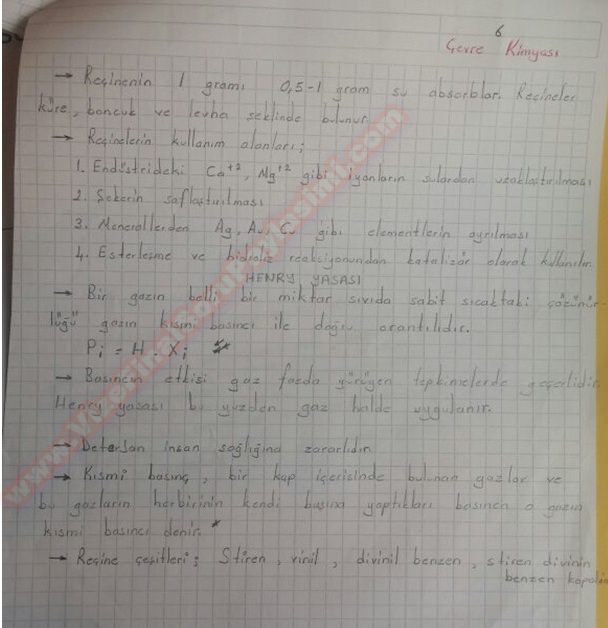 6
Çevre Kimyası
→ Reçinenin 1 gramı 0,5-1 gram su absorblar. Reçineler
küre, boncuk ve levha şeklinde bulunur.
→ Reçinelerin kullanım alanları;
1. Endüstrideki Ca+2, Mg+2 gibi iyonların sulardan uzaklaştırılması
2. Şekerin saflaştırılması
3. Minerallerden Ag, Au, Cu gibi elementlerin ayrılması
4. Esterleşme ve hidroliz reaksiyonundan katalizör olarak kullanılır.
HENRY YASASI
→ Bir gazın belli bir miktar sıvıda sabit sıcaktaki çözünür-
lüğü gazın kısmi basıncı ile doğru orantılıdır.
Pi = H Xi
→ Basıncın etkisi gaz fazda yürüyen tepkimelerde geçerlidir.
Henry yasası bu yüzden gaz halde uygulanır.
→ Deterjan insan sağlığına zararlıdır
→ Kısmi basınç, bir kap içerisinde bulunan gazlar ve
bu gazların herbirinin kendi başına yaptıkları basıncın o gazın
kısmi basıncı denir. *
→ Reçine çeşitleri; Stiren, vinil, divinil benzen, stiren divinin
benzen
www.VizeFinalSoruPaylasimi.com